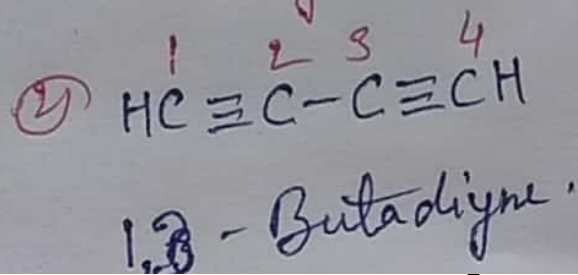 1 2 3 4
④ HC≡C-C≡CH
1,3 - Butadiyne.